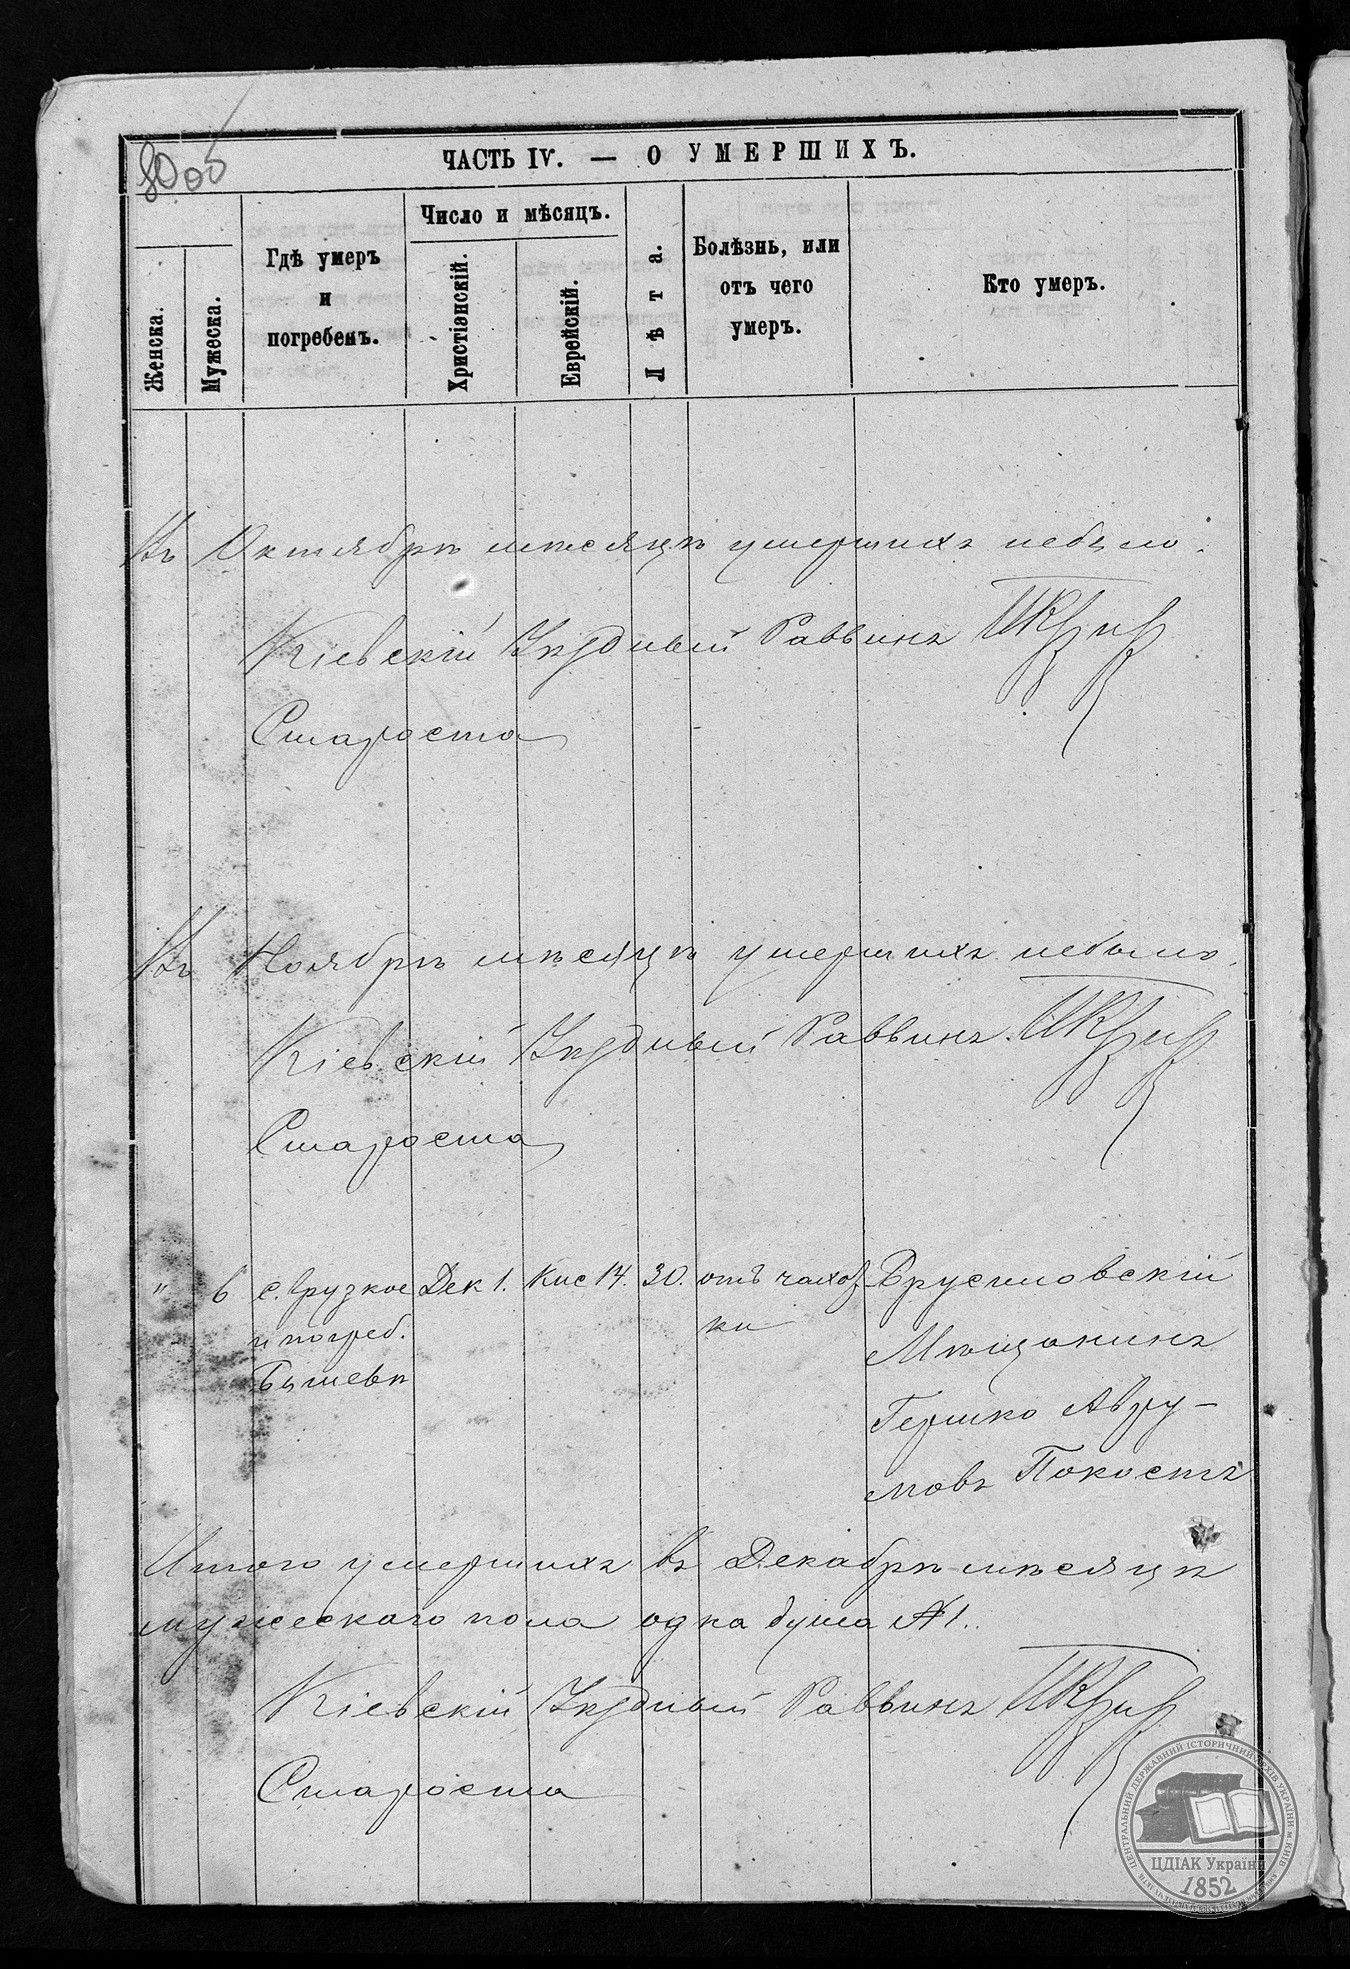 80 об
ЧАСТЬ IV. — О УМЕРШИХЪ.
Женска.
Мужеска.
Гдѣ умеръ
и
погребенъ.
Число и мѣсяцъ.
Христіанскій.
Еврейскій.
Лѣта.
Болѣзнь, или
отъ чего
умеръ.
Кто умеръ.
Въ Октябрѣ мѣсяцѣ умершихъ небыло.
Кіевскій Уѣздный Раввинъ
Староста
Въ Ноябрѣ мѣсяцѣ умершихъ небыло.
Кіевскій Уѣздный Раввинъ
Староста
" 6 с. Грузкое Дек 1. Кис 14. 30. отъ чахот Брусиловскій
и погреб. ки Мѣщанинъ
Бышевѣ
Гершко Авру-
мовъ Покостъ
Итого умершихъ въ Декабрѣ мѣсяцѣ
мужескаго пола одна душа №1.
Кіевскій Уѣздный Раввинъ
Староста
ЦЕНТРАЛЬНИЙ ДЕРЖАВНИЙ ІСТОРИЧНИЙ АРХІВ УКРАЇНИ м. КИЇВ
ЦДІАК України
1852